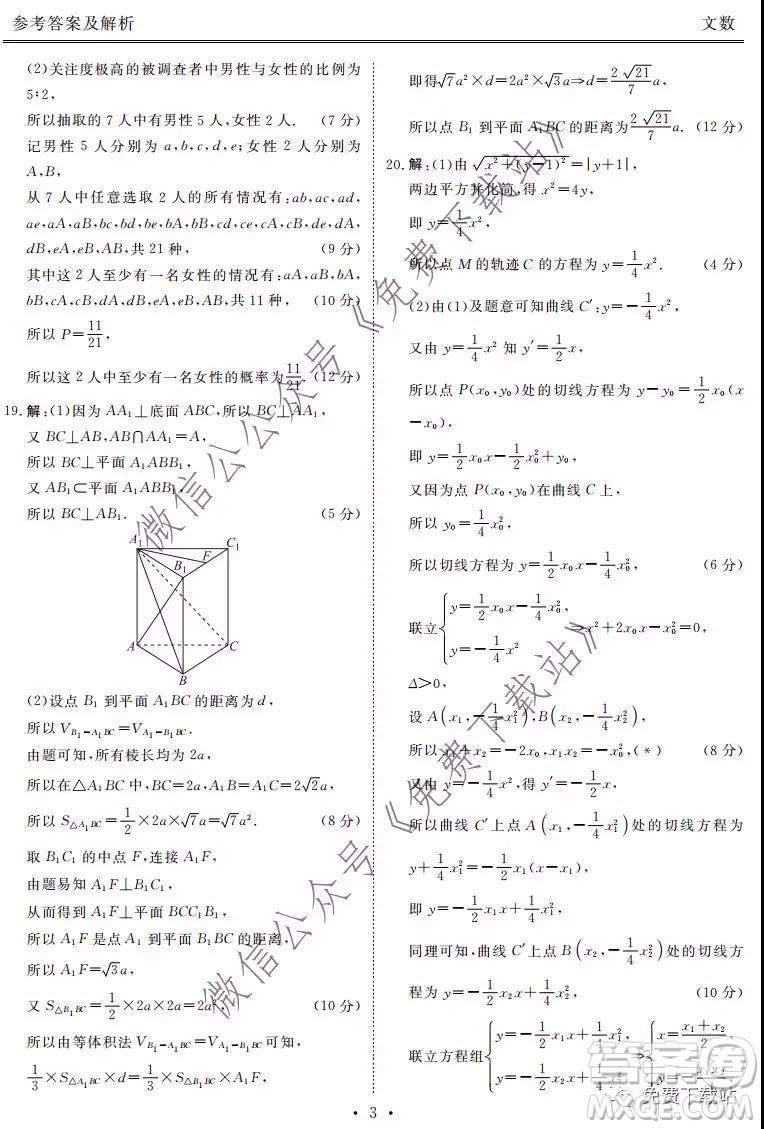 参考答案及解析
文数
(2)关注度极高的被调查者中男性与女性的比例为
5∶2,
所以抽取的 7 人中有男性 5 人，女性 2 人. (7 分)
记男性 5 人分别为 a,b,c,d,e;女性 2 人分别为
A,B,
从 7 人中任意选取 2 人的所有情况有:ab,ac,ad,
ae,aA,aB,bc,bd,be,bA,bB,cd,ce,cA,cB,de,dA,
dB,eA,eB,AB,共 21 种, (9 分)
其中这 2 人至少有一名女性的情况有:aA,aB,bA,
bB,cA,cB,dA,dB,eA,eB,AB,共 11 种, (10 分)
所以 P=11/21,
所以这 2 人中至少有一名女性的概率为11/21. (12 分)
19.解:(1)因为 AA₁⊥底面 ABC,所以 BC⊥AA₁,
又 BC⊥AB,AB∩AA₁=A,
所以 BC⊥平面 A₁ABB₁,
又 AB₁⊂平面 A₁ABB₁,
所以 BC⊥AB₁. (5 分)
A₁ C₁
F
B₁
A C
B
(2)设点 B₁ 到平面 A₁BC 的距离为 d,
所以 V_{B₁-A₁BC}=V_{A₁-B₁BC}.
由题可知,所有棱长均为 2a,
所以在△A₁BC 中,BC=2a,A₁B=A₁C=2√2a,
所以 S_{△A₁BC}=1/2×2a×√7a=√7a². (8 分)
取 B₁C₁ 的中点 F,连接 A₁F,
由题易知 A₁F⊥B₁C₁,
从而得到 A₁F⊥平面 BCC₁B₁,
所以 A₁F 是点 A₁ 到平面 B₁BC 的距离,
所以 A₁F=√3a,
又 S_{△B₁BC}=1/2×2a×2a=2a², (10 分)
所以由等体积法 V_{B₁-A₁BC}=V_{A₁-B₁BC}可知,
1/3×S_{△A₁BC}×d=1/3×S_{△B₁BC}×A₁F,
即得√7a²×d=2a²×√3a⇒d=2√21/7 a,
所以点 B₁ 到平面 A₁BC 的距离为2√21/7 a. (12 分)
20.解:(1)由 √(x²+(y-1)²)=|y+1|,
两边平方并化简,得 x²=4y,
即 y=1/4x²,
所以点 M 的轨迹 C 的方程为 y=1/4x². (4 分)
(2)由(1)及题意可知曲线 C′:y=-1/4x²,
又由 y=1/4x² 知 y′=1/2x,
所以点 P(x₀,y₀)处的切线方程为 y-y₀=1/2x₀(x
-x₀),
即 y=1/2x₀x-1/2x₀²+y₀,
又因为点 P(x₀,y₀)在曲线 C 上,
所以 y₀=1/4x₀²,
所以切线方程为 y=1/2x₀x-1/4x₀², (6 分)
联立{y=1/2x₀x-1/4x₀², y=-1/4x² ⇒x²+2x₀x-x₀²=0,
Δ>0,
设 A(x₁,-1/4x₁²),B(x₂,-1/4x₂²),
所以 x₁+x₂=-2x₀,x₁x₂=-x₀²,(*) (8 分)
又由 y=-1/4x²,得 y′=-1/2x,
所以曲线 C′上点 A(x₁,-1/4x₁²)处的切线方程为
y+1/4x₁²=-1/2x₁(x-x₁),
即 y=-1/2x₁x+1/4x₁²,
同理可知,曲线 C′上点 B(x₂,-1/4x₂²)处的切线方
程为 y=-1/2x₂x+1/4x₂², (10 分)
联立方程组{y=-1/2x₁x+1/4x₁², y=-1/2x₂x+1/4x₂² ⇒{x=(x₁+x₂)/2, y=-x₁x₂/4
• 3 •
微信公众号《免费下载站》
微信公众号《免费下载站》
答案圈
免费下载站